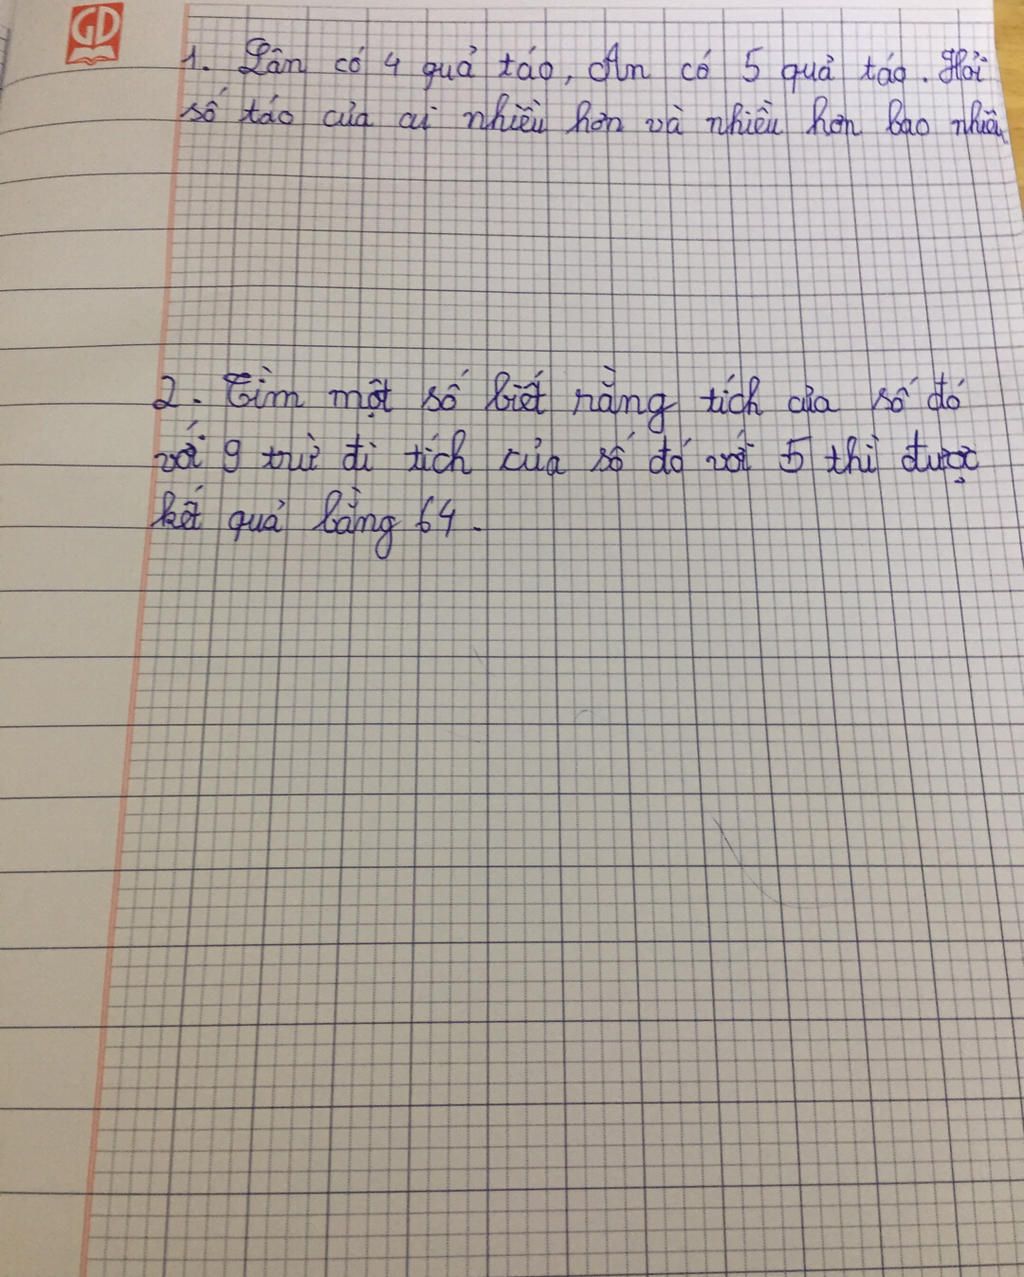 GD
1. Lân có 4 quả táo, An có 5 quả táo. Hỏi
số táo của ai nhiều hơn và nhiều hơn bao nhiêu
2. Tìm một số biết rằng tích của số đó
với 9 trừ đi tích của số đó với 5 thì được
kết quả bằng 64.